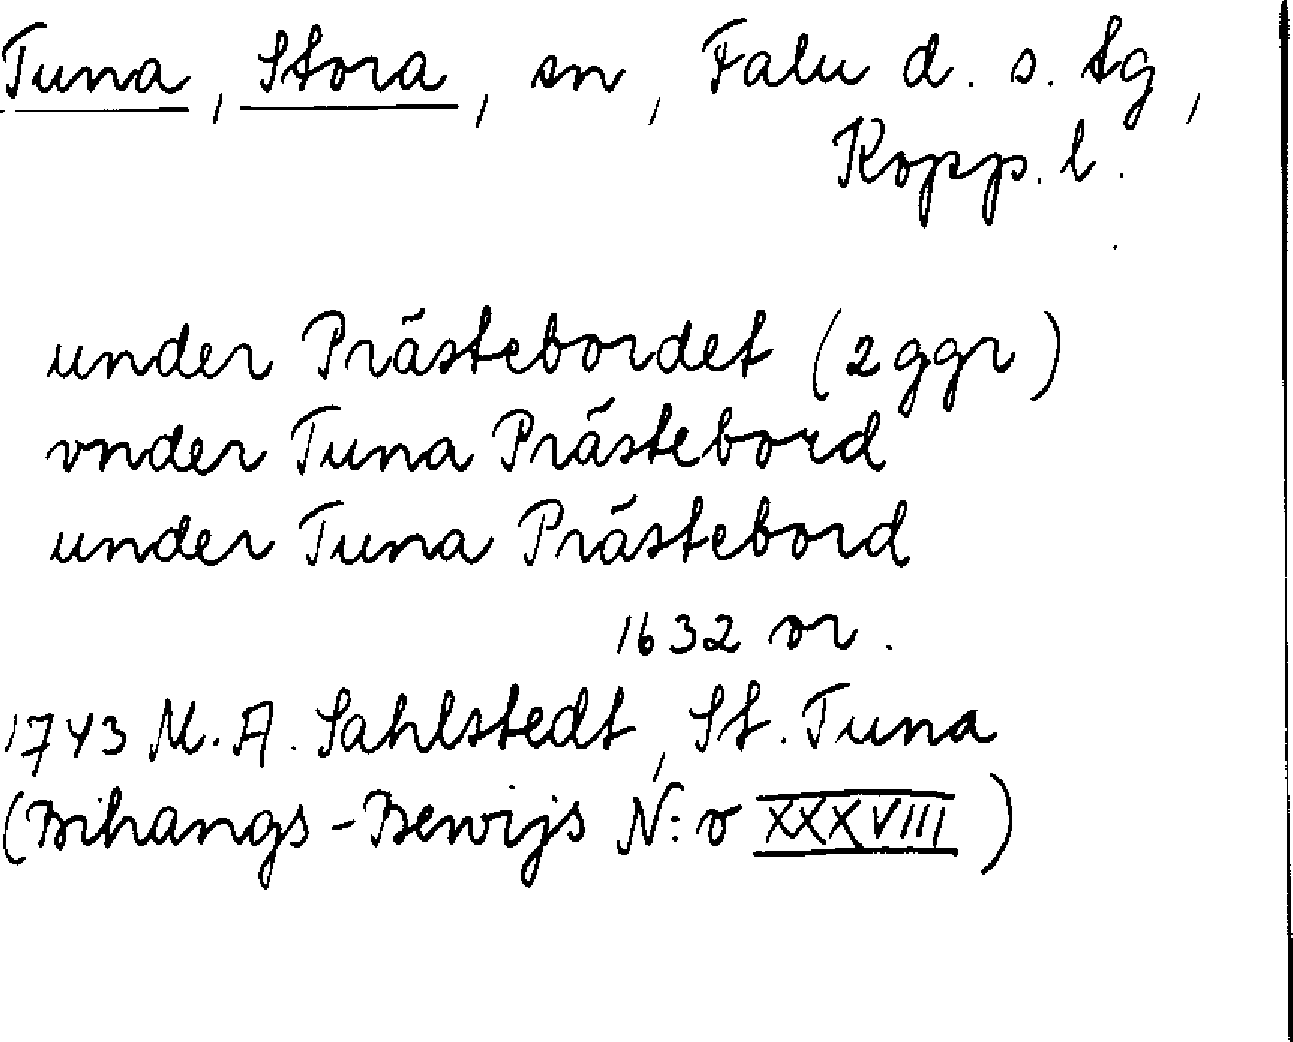 Tuna, Stora, sn, Falu d. s. tg,
Kopp. l.
under Prästebordet (2 ggr)
vnder Tuna Prästebord
under Tuna Prästebord
1632 or.
1743 M. A. Sahlstedt, St. Tuna
(Bihangs-Bewijs N:o XXXVIII)